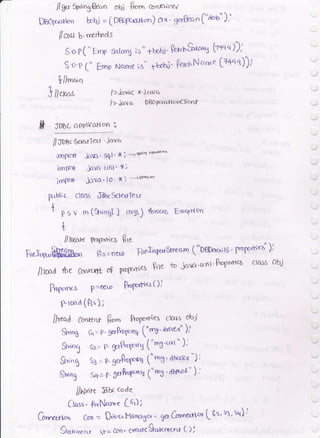 //get SpringBean obj from container
DBOperation bobj = (DBOperation) ctx.getBean("dob");
//call b.methods
S.o.p("Emp Salary is" +bobj.fetchSalary(7499));
S.o.p("Emp Name is" +bobj.fetchName(7499));
}//main
}//class
/>javac *.java
/>java DBOperationClient
# JDBC application :
//JDBCSelectTest.java
import java.sql.*;
import java.util.*;
import java.io.*; → streams
public class JdbcSelectTest
{
p s v m(String[] args) throws Exception
{
//locate properties file
FileInputStream fis=new FileInputStream("DBDetails.properties");
//load the content of properties file to java.util.Properties class obj
Properties p=new Properties();
p.load(fis);
//read content from Properties class obj
String s1=p.getProperty("my.driver");
String s2=p.getProperty("my.url");
String s3=p.getProperty("my.dbuser");
String s4=p.getProperty("my.dbpwd");
//write Jdbc code
Class.forName(s1);
Connection con = DriverManager.getConnection(s2,s3,s4);
Statement st=con.createStatement();